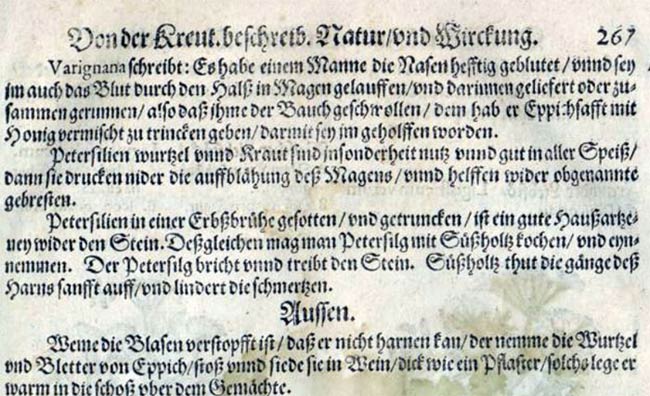 Von der Kreut. beschreib. Natur/vnd Wirckung. 267
Varignana schreibt: Es habe einem Manne die Nasen hefftig geblutet/vnnd sey
im auch das Blut durch den Halß in Magen gelauffen/vnd darinnen geliefert oder zu-
sammen gerunnen/also daß ihme der Bauch geschwollen/dem hab er Eppichsafft mit
Honig vermischt zu trincken geben/darmit sey im geholffen worden.
Petersilien wurtzel vnnd Kraut sind insonderheit nutz vnnd gut in aller Speiß/
dann sie drucken nider die auffblähung deß Magens/vnnd helffen wider obgenannte
gebresten.
Petersilien in einer Erbßbrühe gesotten/vnd getruncken/ist ein gute Haußartze-
ney wider den Stein. Deßgleichen mag man Petersilg mit Süßholtz kochen/vnd eyn-
nemmen. Der Petersilg bricht vnnd treibt den Stein. Süßholtz thut die gänge deß
Harns sanfft auff/vnd lindert die schmertzen.
Aussen.
Weme die Blasen verstopfft ist/daß er nicht harnen kan/der nemme die Wurtzel
vnd Bletter von Eppich/stoß vnnd siede sie in Wein/dick wie ein Pflaster/solchs lege er
warm in die schoß vber dem Gemächte.